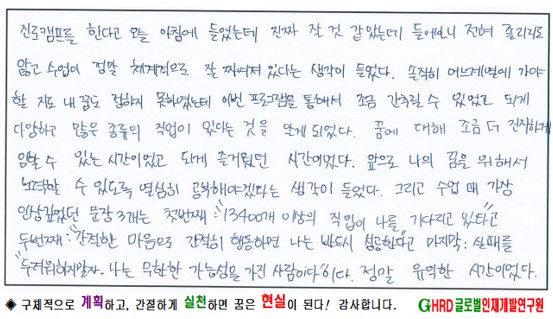 진로캠프를 한다고 오늘 아침에 들었는데 진짜 잘 것 같았는데 들어보니 전혀 졸리지도
않고 수업이 정말 체계적으로 잘 짜여져 있다는 생각이 들었다. 솔직히 어느계열에 가야
할 지도 내 꿈도 정하지 못하였는데 이번 프로그램을 통해서 조금 간추릴 수 있었고 되게
다양하고 많은 종류의 직업이 있다는 것을 알게 되었다. 꿈에 대해 조금 더 진지하게
임할 수 있는 시간이었고 되게 즐거웠던 시간이었다. 앞으로 나의 꿈을 위해서
노력할 수 있도록 열심히 공부해야겠다는 생각이 들었다. 그리고 수업 때 가장
인상깊었던 문장 3개는 첫번째: "13400개 이상의 직업이 나를 기다리고 있다"고
두번째: "간절한 마음으로 간절히 행동하면 나는 반드시 성공한다"고 마지막: "실패를
두려워하지말자. 나는 무한한 가능성을 가진 사람이다"이다. 정말 유익한 시간이었다.
◈ 구체적으로 계획하고, 간절하게 실천하면 꿈은 현실이 된다! 감사합니다. GHRD 글로벌인재개발연구원